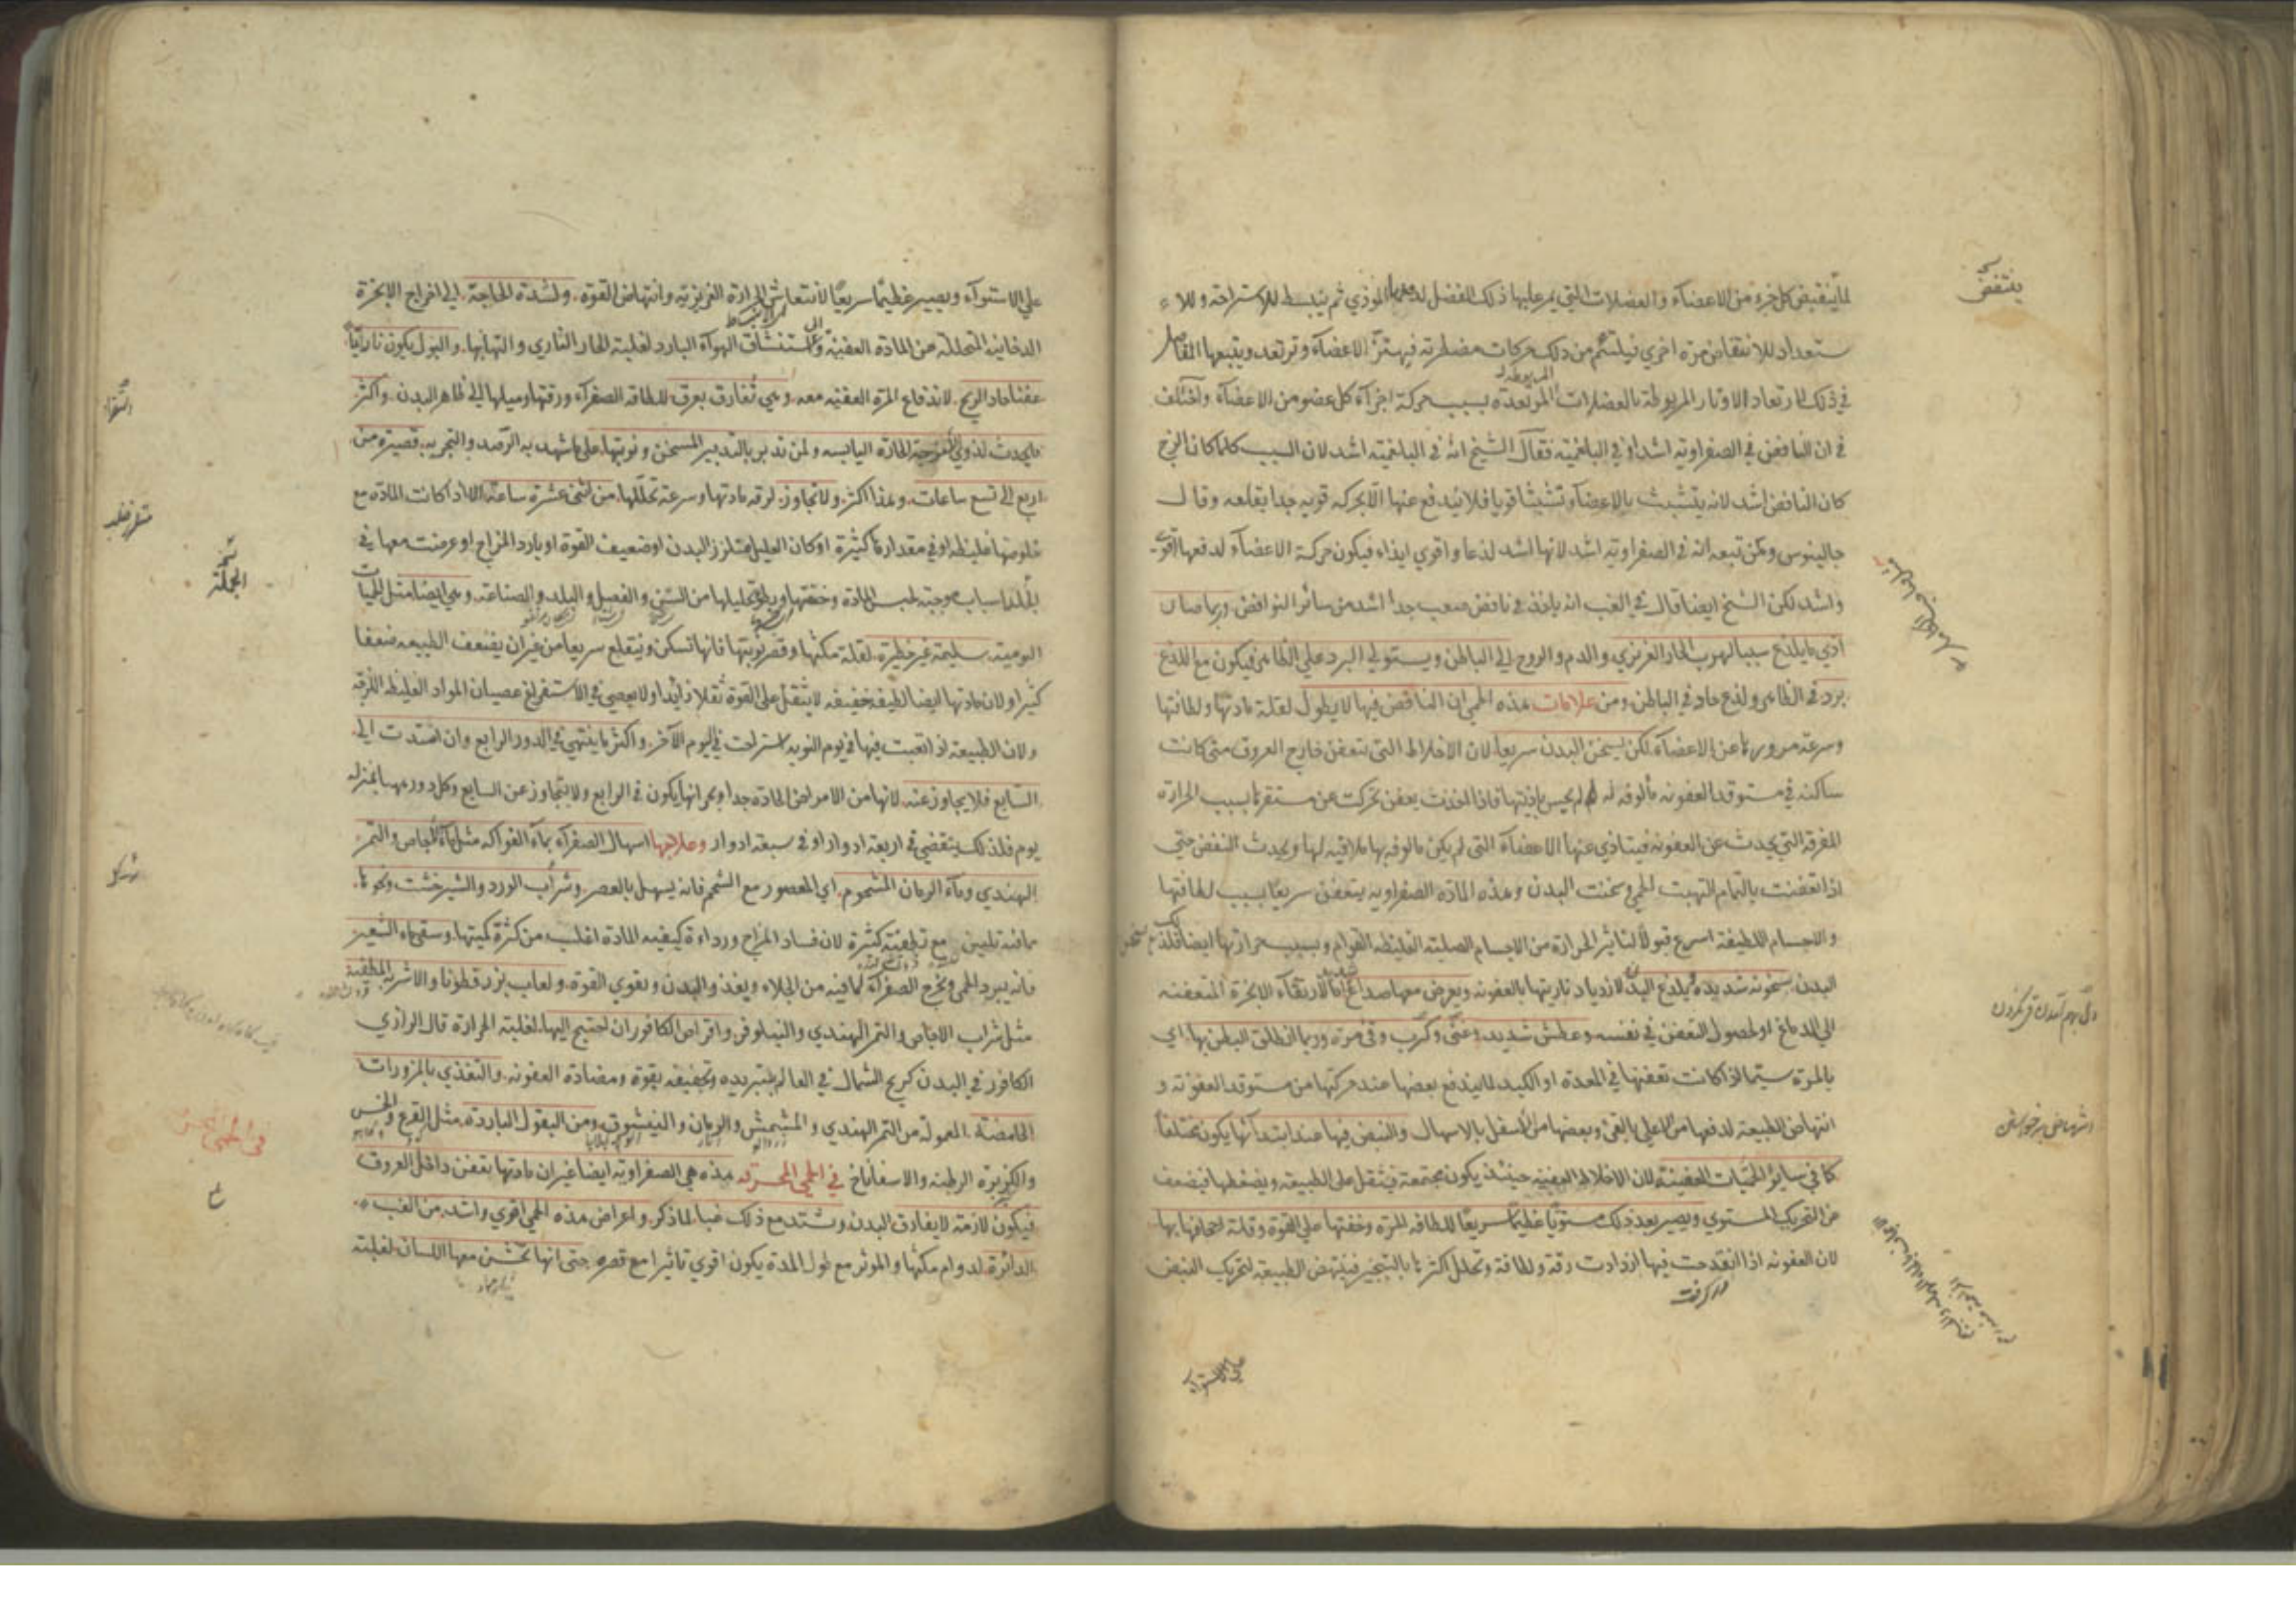 لما ينقبض كل جزء من الاعضآء والعضلات التي يمر عليها ذلك الفضل لدفعها الموذي ثم ينبسط للاستراحة وللا
ستعداد للانتقاض مرة اخري فيلتئم من ذلك حركات مضطربة فيهتز الاعضآء وترتعد ويتبعها
في ذلك الارتعاد الاوتار المربوطة بالعضلات المرتعدة بسبب حركة اجزآء كل عضو من الاعضآء واختلف
في ان النافض في الصفراوية اشد او في البلغمية فقال الشيخ انه في البلغمية اشد لان السبب كلما كان الزج
كان النافض اشد لانه يتشبث بالاعضآء تشبثا قويا فلا يندفع عنها الا بحركه قويه جدا يقلعه وقال
جالينوس ومن تبعه انه في الصفراوية اشد لانها اشد لذعا واقوي ايذاء فيكون حركة الاعضآء لدفعها اقوي
واشد لكن الشيخ ايضا قال في الغب انه ياخذ في نافض صعب جدا اشد من سائر النوافض وربما صار
اذي ما يلذع سببا لهرب الحار الغريزي والدم والروح الي الباطن ويستولي البرد علي الظاهر فيكون مع اللذع
برد في الظاهر ولذع حاد في الباطن ومن علامات هذه الحمي ان النافض فيها لا يطول لقلة مادتها ولطافتها
وسرعة مرورها عن الاعضآء لكن يسخن البدن سريعا لان الاخلاط التي تتعفن خارج العروق متى كانت
ساكنه في مستوقد العفونه مألوفه له لم يحس باذيتها فاذا اخذت يعفن تحركت عن مستقرها بسبب الحرارة
المفرقة التي يحدث عن العفونه فيتاذي عنها الاعضآء التي لم يكن مالوفه بها ملاقيه لها ويحدث النفض حتي
اذا تعفنت بالتمام التهبت الحمي وسخنت البدن وهذه المادة الصفراويه يتعفن سريعا بسبب لطافتها
والاجسام اللطيفة اسرع قبولا لتاثير الحرارة من الاجسام الصلبة الغليظه القوام وبسبب حرارتها ايضا فلذلك
البدن سخونه شديده يلذع اليد لازدياد ناريتها بالعفونه ويعرض معها صداع لارتقآء الابخرة المتعفنه
الي الدماغ او لحصول التعفن في نفسه وعطش شديد وغثي وكرب وقئ مرة وربما انطلق البطن بها اي
بالمرة سيما اذا كانت تعفنها في المعدة او الكبد لما يندفع بعضها عند حركتها من مستوقد العفونة و
انتهاض الطبيعة لدفعها من الاعلي بالقئ وبعضها من الاسفل بالاسهال والنبض فيها عند ابتدآئها يكون مختلفا
كما في سائر الحميات العفينة لان الاخلاط العفنه حينئذ يكون مجتمعة فيثقل على الطبيعة ويضغطها فيضعف
عن التحريك المستوي ويصير بعد ذلك مستويا عظيما سريعا للطافه المرة وخفتها علي القوة وقلة اجحافها بها
لان العفونه اذا انقدحت فيها ازدادت رقة ولطافة وتحلل اكثرها بالتبخير فينتهض الطبيعة لتحريك النبض
علي الاستواء
ينتفض
علي الاستوآء ويصير عظيما سريعا لانتعاش الحرارة الغريزية وانتهاض القوة ولشدة الحاجة الي اخراج الابخرة
الدخانية المتحللة من المادة العفينة والى استنشاق الهوآء البارد لغلبة الحار الناري والتهابها والبول يكون ناريا
عفنا حاد الريح لاندفاع المرة العفنه معه وهي تفارق بعرق للطافة الصفرآء ورقتها وميلها الي ظاهر البدن واكثر
ما يحدث لذوي الامزجة الحارة اليابسه ولمن تدبر بالتدبير المسخن ونوبتها على ما شهد به الرصد والتجربه قصيرة من
اربع الى تسع ساعات وهذا اكثر ولا تجاوز لرقة مادتها وسرعة تحللها من اثنتي عشرة ساعة الا اذا كانت المادة مع
خلوصها غليظه او في مقدارها كثيرة او كان العليل متلزز البدن او ضعيف القوة او بارد المزاج او عرضت معها في
بدنه اسباب موجبة لحبس المادة وخفتها وبطؤ تحليلها من السن والفصل والبلد والصناعة وهي ايضا مثل الحميات
اليومية سليمة غير خطرة لقلة مكثها وقصر نوبتها فانها تسكن وتنقلع سريعا من غير ان يضعف الطبيعه ضعفا
كثيرا ولان مادتها ايضا لطيفه خفيفه لا يثقل على القوة ثقلا زائدا ولا يعصي في الاستفراغ عصيان المواد الغليظه اللزجه
ولان الطبيعة اذا تعبت فيها في يوم النوبه استراحت في اليوم الآخر واكثر ما ينتهي في الدور الرابع وان امتدت الي
السابع فلا يجاوز عنه لانها من الامراض الحادة جدا وبحرانها يكون في الرابع ولا يتجاوز عن السابع وكل دور مهما بمنزلة
يوم فلذلك ينقضي في اربعة ادوار او في سبعة ادوار وعلاجها اسهال الصفرآء بمآء الفواكه مثل مآء الاجاص والتمر
الهندي ومآء الرمان المشحوم اي المعصور مع الشحم فانه يسهل بالعصر وشراب الورد والشيرخشت ونحوها
مما فيه تليين مع تطفية كثيرة لان فساد المزاج ورداءة كيفيه المادة اغلب من كثرة كميتها وسقي مآء الشعير
فانه يبرد الحمى ويخرج الصفرآء لما فيه من الجلاء ويغذو البدن ويقوي القوة ولعاب بزر قطونا والاشربة المطفية
مثل شراب الاجاص والتمر الهندي والنيلوفر واقراص الكافور ان احتيج اليها لغلبة الحرارة قال الرازي
الكافور في البدن كريح الشمال في العالم بتبريده وتجفيفه بقوة ومضادة العفونه والتغذي بالمزورات
الحامضة المعمولة من التمر الهندي والمشمش والرمان والنيشوق ومن البقول الباردة مثل القرع والخس
والكزبرة الرطبة والاسفاناخ في الحمي المحرقه هذه هي الصفراوية ايضا غير ان مادتها يتعفن داخل العروق
فيكون لازمة لا يفارق البدن ويشتد مع ذلك غبا لما ذكر واعراض هذه الحمي اقوي واشد من الغب
الدائرة لدوام مكثها والموثر مع طول المدة يكون اقوي تاثيرا مع قصره حتى انها تخشن معها اللسان لغلبته
الجملة